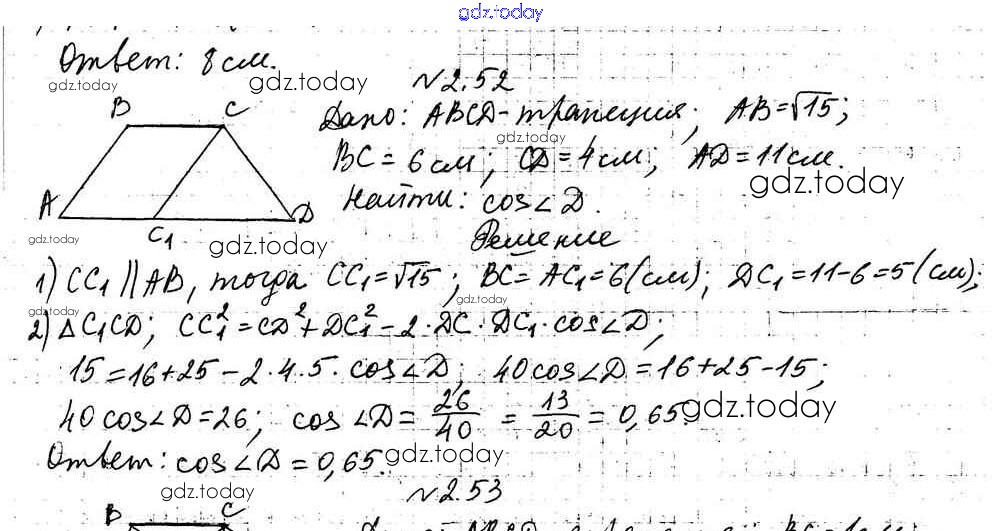 gdz.today
Ответ: 8 см.
gdz.today
gdz.today
N 2.52
B C
A C₁ D
Дано: ABCD-трапеция; AB=√15;
gdz.today
BC = 6 см; CD = 4 см; AD = 11 см.
gdz.today
Найти: cos∠D.
gdz.today
gdz.today
Решение
1) CC₁ ∥ AB, тогда CC₁ = √15; BC = AC₁ = 6 (см); DC₁ = 11-6 = 5 (см);
gdz.today
gdz.today
2) △C₁CD; CC₁² = CD² + DC₁² - 2·DC·DC₁·cos∠D;
15 = 16 + 25 - 2·4·5·cos∠D; 40cos∠D = 16 + 25 - 15;
40 cos∠D = 26; cos∠D = 26/40 = 13/20 = 0,65.
gdz.today
Ответ: cos∠D = 0,65.
gdz.today
gdz.today
N 2.53
B C
gdz.today